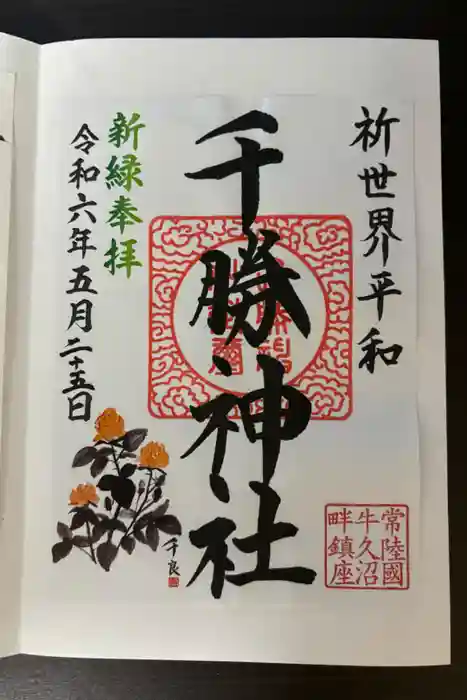 祈世界平和
千勝神社
新緑奉拝
令和六年五月二十五日
千良
常陸國
牛久沼
畔鎮座